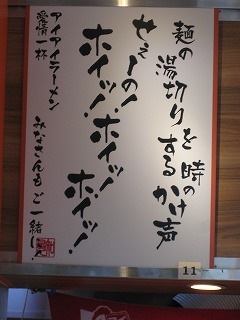 麺の湯切りを
する時の
かけ声
せぇーの!
ホイッ!ホイッ!
ホイッ!
アイアイラーメン
愛情一杯
みなさんもご一緒に
11